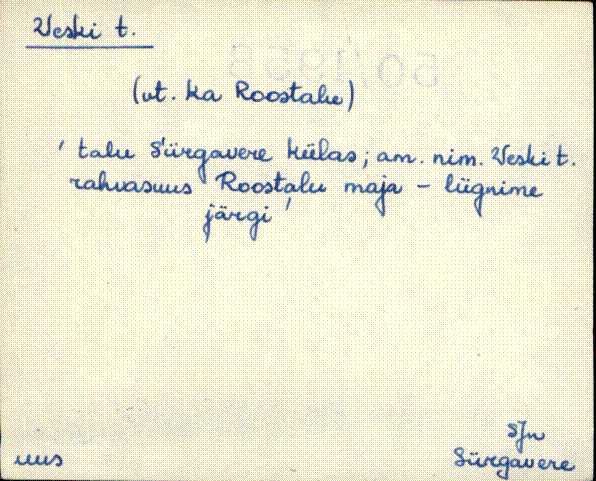 Veski t.
(vt. ka Roostalu)
' talu Sürgavere külas; am. nim. Veski t.
rahvasuus Roostalu maja – liignime
järgi '
SJn
uus Sürgavere